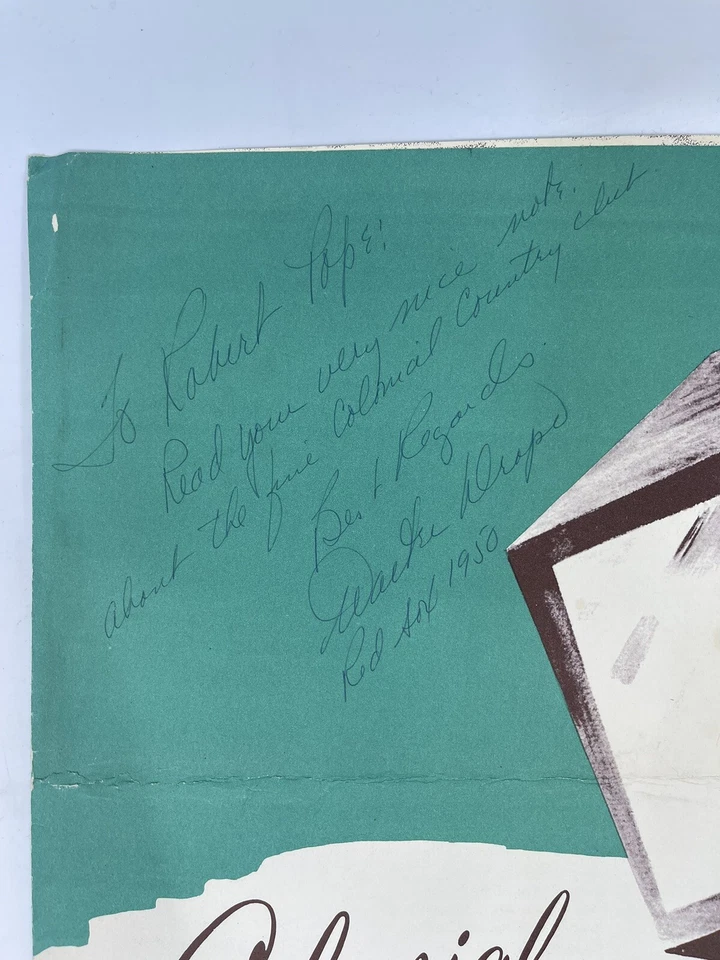 To Robert Pope:
Read your very nice note.
about the fine Colonial Country club.
Best Regards.
Walter Dropo
Red Sox 1950
Colonial